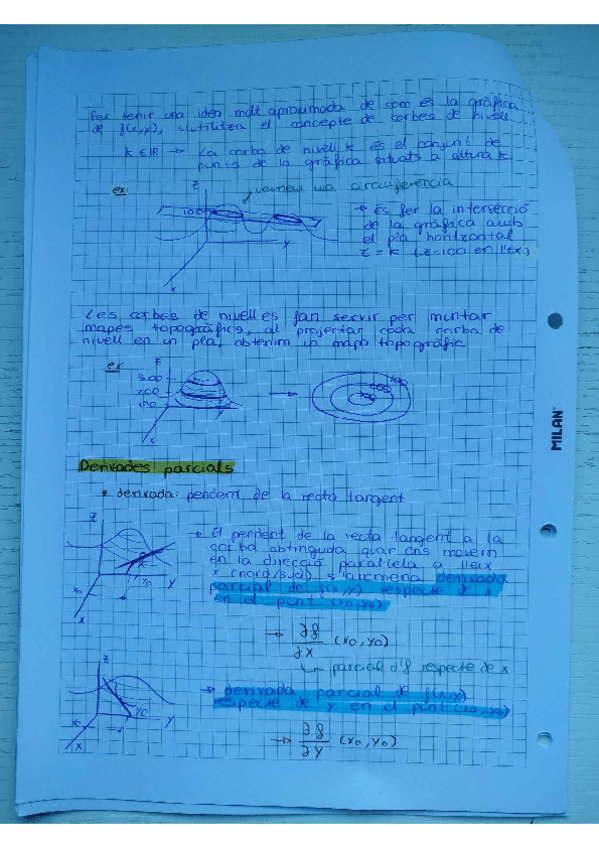 Per tenir una idea molt aproximada de com és la gràfica
de f(x,y), s'utilitza el concepte de corbes de nivell
k ∈ ℝ → La corba de nivell k és el conjunt de
punts de la gràfica situats a altura k
ex:
veuríem una circumferència
z
100
y
x
→ És fer la intersecció
de la gràfica amb
el pla horitzontal
z = k (z=100 en l'ex.)
Les corbes de nivell es fan servir per muntar
mapes topogràfics, al projectar cada corba de
nivell en un pla, obtenim un mapa topogràfic
ex:
z
300
200
100
y
x
→
MILAN
Derivades parcials
* derivada: pendent de la recta tangent
z
x0
y0
y
x
→ El pendent de la recta tangent a la
corba obtinguda quan ens movem
en la direcció paral·lela a l'eix
x (nord/sud) s'anomena derivada
parcial de f(x,y) respecte de x
en el punt (x0,y0)
→ ∂f/∂x (x0,y0)
↳ parcial d'f respecte de x
z
x0
y0
y
x
→ derivada parcial de f(x,y)
respecte de y en el punt (x0,y0)
→ ∂f/∂y (x0,y0)